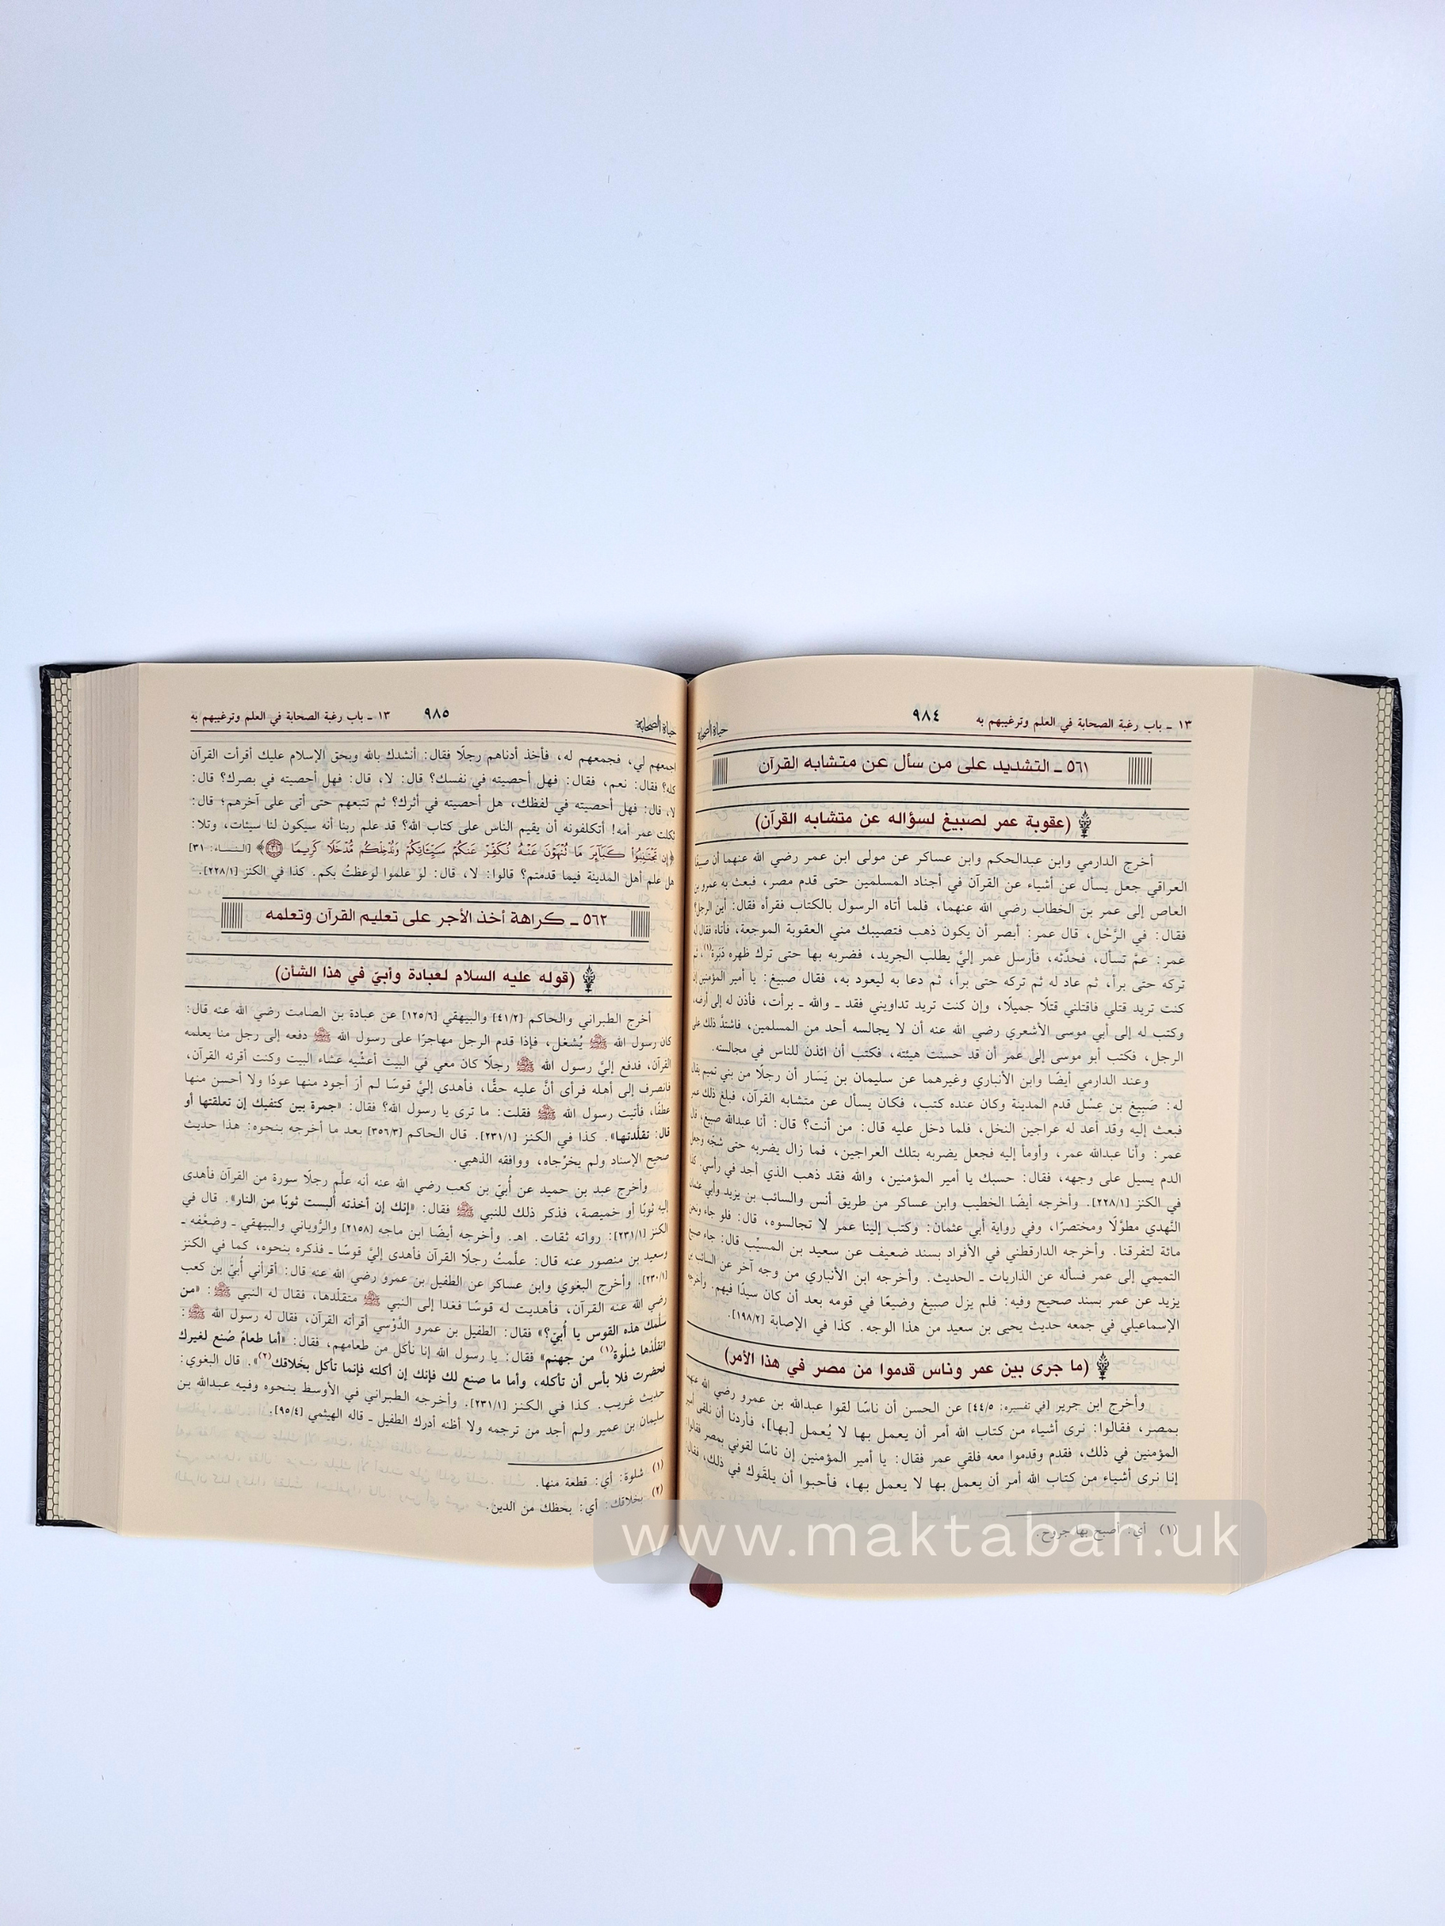 ١٣ ـ باب رغبة الصحابة في العلم وترغيبهم به
٩٨٤
حياة الصحابة
٥٦١ ـ التشديد على من سأل عن متشابه القرآن
(عقوبة عمر لصبيغ لسؤاله عن متشابه القرآن)
أخرج الدارمي وابن عبدالحكم وابن عساكر عن مولى ابن عمر رضي الله عنهما أن صبيغًا
العراقي جعل يسأل عن أشياء عن القرآن في أجناد المسلمين حتى قدم مصر، فبعث به عمرو بن
العاص إلى عمر بن الخطاب رضي الله عنهما، فلما أتاه الرسول بالكتاب فقرأه فقال: أين الرجل؟
فقال: في الرَّحْل، قال عمر: أبصر أن يكون ذهب فتصيبك مني العقوبة الموجعة، فأتاه فقال له
عمر: عمَّ تسأل، فحدَّثه، فأرسل عمر إليَّ يطلب الجريد، فضربه بها حتى ترك ظهره دَبَرة(١)، ثم
تركه حتى برأ، ثم عاد له ثم تركه حتى برأ، ثم دعا به ليعود به، فقال صبيغ: يا أمير المؤمنين إن
كنت تريد قتلي فاقتلني قتلًا جميلًا، وإن كنت تريد تداويني فقد ـ والله ـ برأت، فأذن له إلى أرضه،
وكتب له إلى أبي موسى الأشعري رضي الله عنه أن لا يجالسه أحد من المسلمين، فاشتدَّ ذلك على
الرجل، فكتب أبو موسى إلى عمر أن قد حسنت هيئته، فكتب أن ائذن للناس في مجالسته.
وعند الدارمي أيضًا وابن الأنباري وغيرهما عن سليمان بن يَسَار أن رجلًا من بني تميم يقال
له: صَبِيغ بن عِسْل قدم المدينة وكان عنده كتب، فكان يسأل عن متشابه القرآن، فبلغ ذلك عمر
فبعث إليه وقد أعد له عراجين النخل، فلما دخل عليه قال: من أنت؟ قال: أنا عبدالله صبيغ، قال
عمر: وأنا عبدالله عمر، وأومأ إليه فجعل يضربه بتلك العراجين، فما زال يضربه حتى شجَّه وجعل
الدم يسيل على وجهه، فقال: حسبك يا أمير المؤمنين، والله فقد ذهب الذي أجد في رأسي. كذا
في الكنز [٢٢٨/١]. وأخرجه أيضًا الخطيب وابن عساكر من طريق أنس والسائب بن يزيد وأبي عثمان
النَّهدي مطوّلًا ومختصرًا، وفي رواية أبي عثمان: وكتب إلينا عمر لا تجالسوه، قال: فلو جاء ونحن
مائة لتفرقنا. وأخرجه الدارقطني في الأفراد بسند ضعيف عن سعيد بن المسيّب قال: جاء صبيغ
التميمي إلى عمر فسأله عن الذاريات ـ الحديث. وأخرجه ابن الأنباري من وجه آخر عن السائب بن
يزيد عن عمر بسند صحيح وفيه: فلم يزل صبيغ وضيعًا في قومه بعد أن كان سيدًا فيهم. وأخرجه
الإسماعيلي في جمعه حديث يحيى بن سعيد من هذا الوجه. كذا في الإصابة [١٩٨/٢].
(ما جرى بين عمر وناس قدموا من مصر في هذا الأمر)
وأخرج ابن جرير [في تفسيره: ٤٤/٥] عن الحسن أن ناسًا لقوا عبدالله بن عمرو رضي الله عنهما
بمصر، فقالوا: نرى أشياء من كتاب الله أمر أن يعمل بها لا يُعمل [بها]، فأردنا أن نلقى أمير
المؤمنين في ذلك، فقدم وقدموا معه فلقي عمر فقال: يا أمير المؤمنين إن ناسًا لقوني بمصر فقالوا:
إنا نرى أشياء من كتاب الله أمر أن يعمل بها لا يعمل بها، فأحبوا أن يلقَوك في ذلك، فقال
(١) أي: أصبح بها جروح.
١٣ ـ باب رغبة الصحابة في العلم وترغيبهم به
٩٨٥
حياة الصحابة
اجمعهم لي، فجمعهم له، فأخذ أدناهم رجلًا فقال: أنشدك بالله وبحق الإسلام عليك أقرأت القرآن
كله؟ فقال: نعم، فقال: فهل أحصيته في نفسك؟ قال: لا، قال: فهل أحصيته في بصرك؟ قال:
لا، قال: فهل أحصيته في لفظك، هل أحصيته في أثرك؟ ثم تتبعهم حتى أتى على آخرهم؛ قال:
ثكلت عمر أمه! أتكلفونه أن يقيم الناس على كتاب الله؟ قد علم ربنا أنه سيكون لنا سيئات، وتلا:
﴿إِن تَجْتَنِبُوا۟ كَبَآئِرَ مَا تُنْهَوْنَ عَنْهُ نُكَفِّرْ عَنكُمْ سَيِّـَٔاتِكُمْ وَنُدْخِلْكُم مُّدْخَلًا كَرِيمًا ٣١﴾ [النساء: ٣١]
هل علم أهل المدينة فيما قدمتم؟ قالوا: لا، قال: لوْ علموا لوعظتُ بكم. كذا في الكنز [٢٢٨/١].
٥٦٢ ـ كراهة أخذ الأجر على تعليم القرآن وتعلمه
(قوله عليه السلام لعبادة وأبيّ في هذا الشأن)
أخرج الطبراني والحاكم [٤١/٢] والبيهقي [١٢٥/٦] عن عبادة بن الصامت رضي الله عنه قال:
كان رسول الله ﷺ يُشغل، فإذا قدم الرجل مهاجرًا على رسول الله ﷺ دفعه إلى رجل منا يعلمه
القرآن، فدفع إليَّ رسول الله ﷺ رجلًا كان معي في البيت أعشّيه عشاء البيت وكنت أقرئه القرآن،
فانصرف إلى أهله فرأى أنَّ عليه حقًّا، فأهدى إليَّ قوسًا لم أرَ أجود منها عودًا ولا أحسن منها
عطفًا، فأتيت رسول الله ﷺ فقلت: ما ترى يا رسول الله؟ فقال: «جمرة بين كتفيك إن تعلقتها أو
قال: تقلَّدتها». كذا في الكنز [٢٣١/١]. قال الحاكم [٣٥٦/٣] بعد ما أخرجه بنحوه: هذا حديث
صحيح الإسناد ولم يخرِّجاه، ووافقه الذهبي.
وأخرج عبد بن حميد عن أُبيّ بن كعب رضي الله عنه أنه علَّم رجلًا سورة من القرآن فأهدى
إليه ثوبًا أو خميصة، فذكر ذلك للنبي ﷺ فقال: «إنك إن أخذته أُلبست ثوبًا من النار». قال في
الكنز [٢٣١/١]: رواته ثقات. اهـ. وأخرجه أيضًا ابن ماجه [٢١٥٨] والرُّوياني والبيهقي ـ وضعَّفه ـ
وسعيد بن منصور عنه قال: علَّمتُ رجلًا القرآن فأهدى إليَّ قوسًا ـ فذكره بنحوه، كما في الكنز
[٢٣٠/١]. وأخرج البغوي وابن عساكر عن الطفيل بن عمرو رضي الله عنه قال: أقرأني أُبيّ بن كعب
رضي الله عنه القرآن، فأهديت له قوسًا فغدا إلى النبي ﷺ متقلّدها، فقال له النبي ﷺ: «من
سلّمك هذه القوس يا أُبيّ؟» فقال: الطفيل بن عمرو الدَّوْسي أقرأته القرآن، فقال له رسول الله ﷺ:
«تقلَّدها شلْوة(١) من جهنم» فقال: يا رسول الله إنا نأكل من طعامهم، فقال: «أما طعامٌ صُنع لغيرك
فحضرت فلا بأس أن تأكله، وأما ما صنع لك فإنك إن أكلته فإنما تأكل بخَلاقك(٢)». قال البغوي:
حديث غريب. كذا في الكنز [٢٣١/١]. وأخرجه الطبراني في الأوسط بنحوه وفيه عبدالله بن
سليمان بن عمير ولم أجد من ترجمه ولا أظنه أدرك الطفيل ـ قاله الهيثمي [٩٥/٤].
(١) شلوة: أي: قطعة منها.
(٢) بخلاقك: أي: بحظك من الدين.
www.maktabah.uk